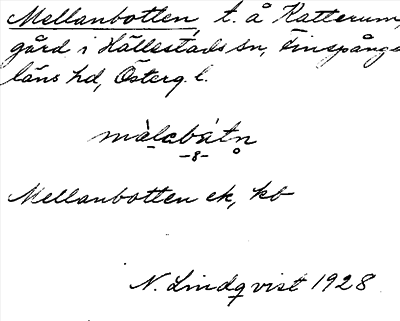 Mellanbotten, t. å Katterum,
gård i Hällestads sn, Finspånga
läns hd, Österg. l.
màlabátn
-8-
Mellanbotten ek, kb
N. Lindqvist 1928